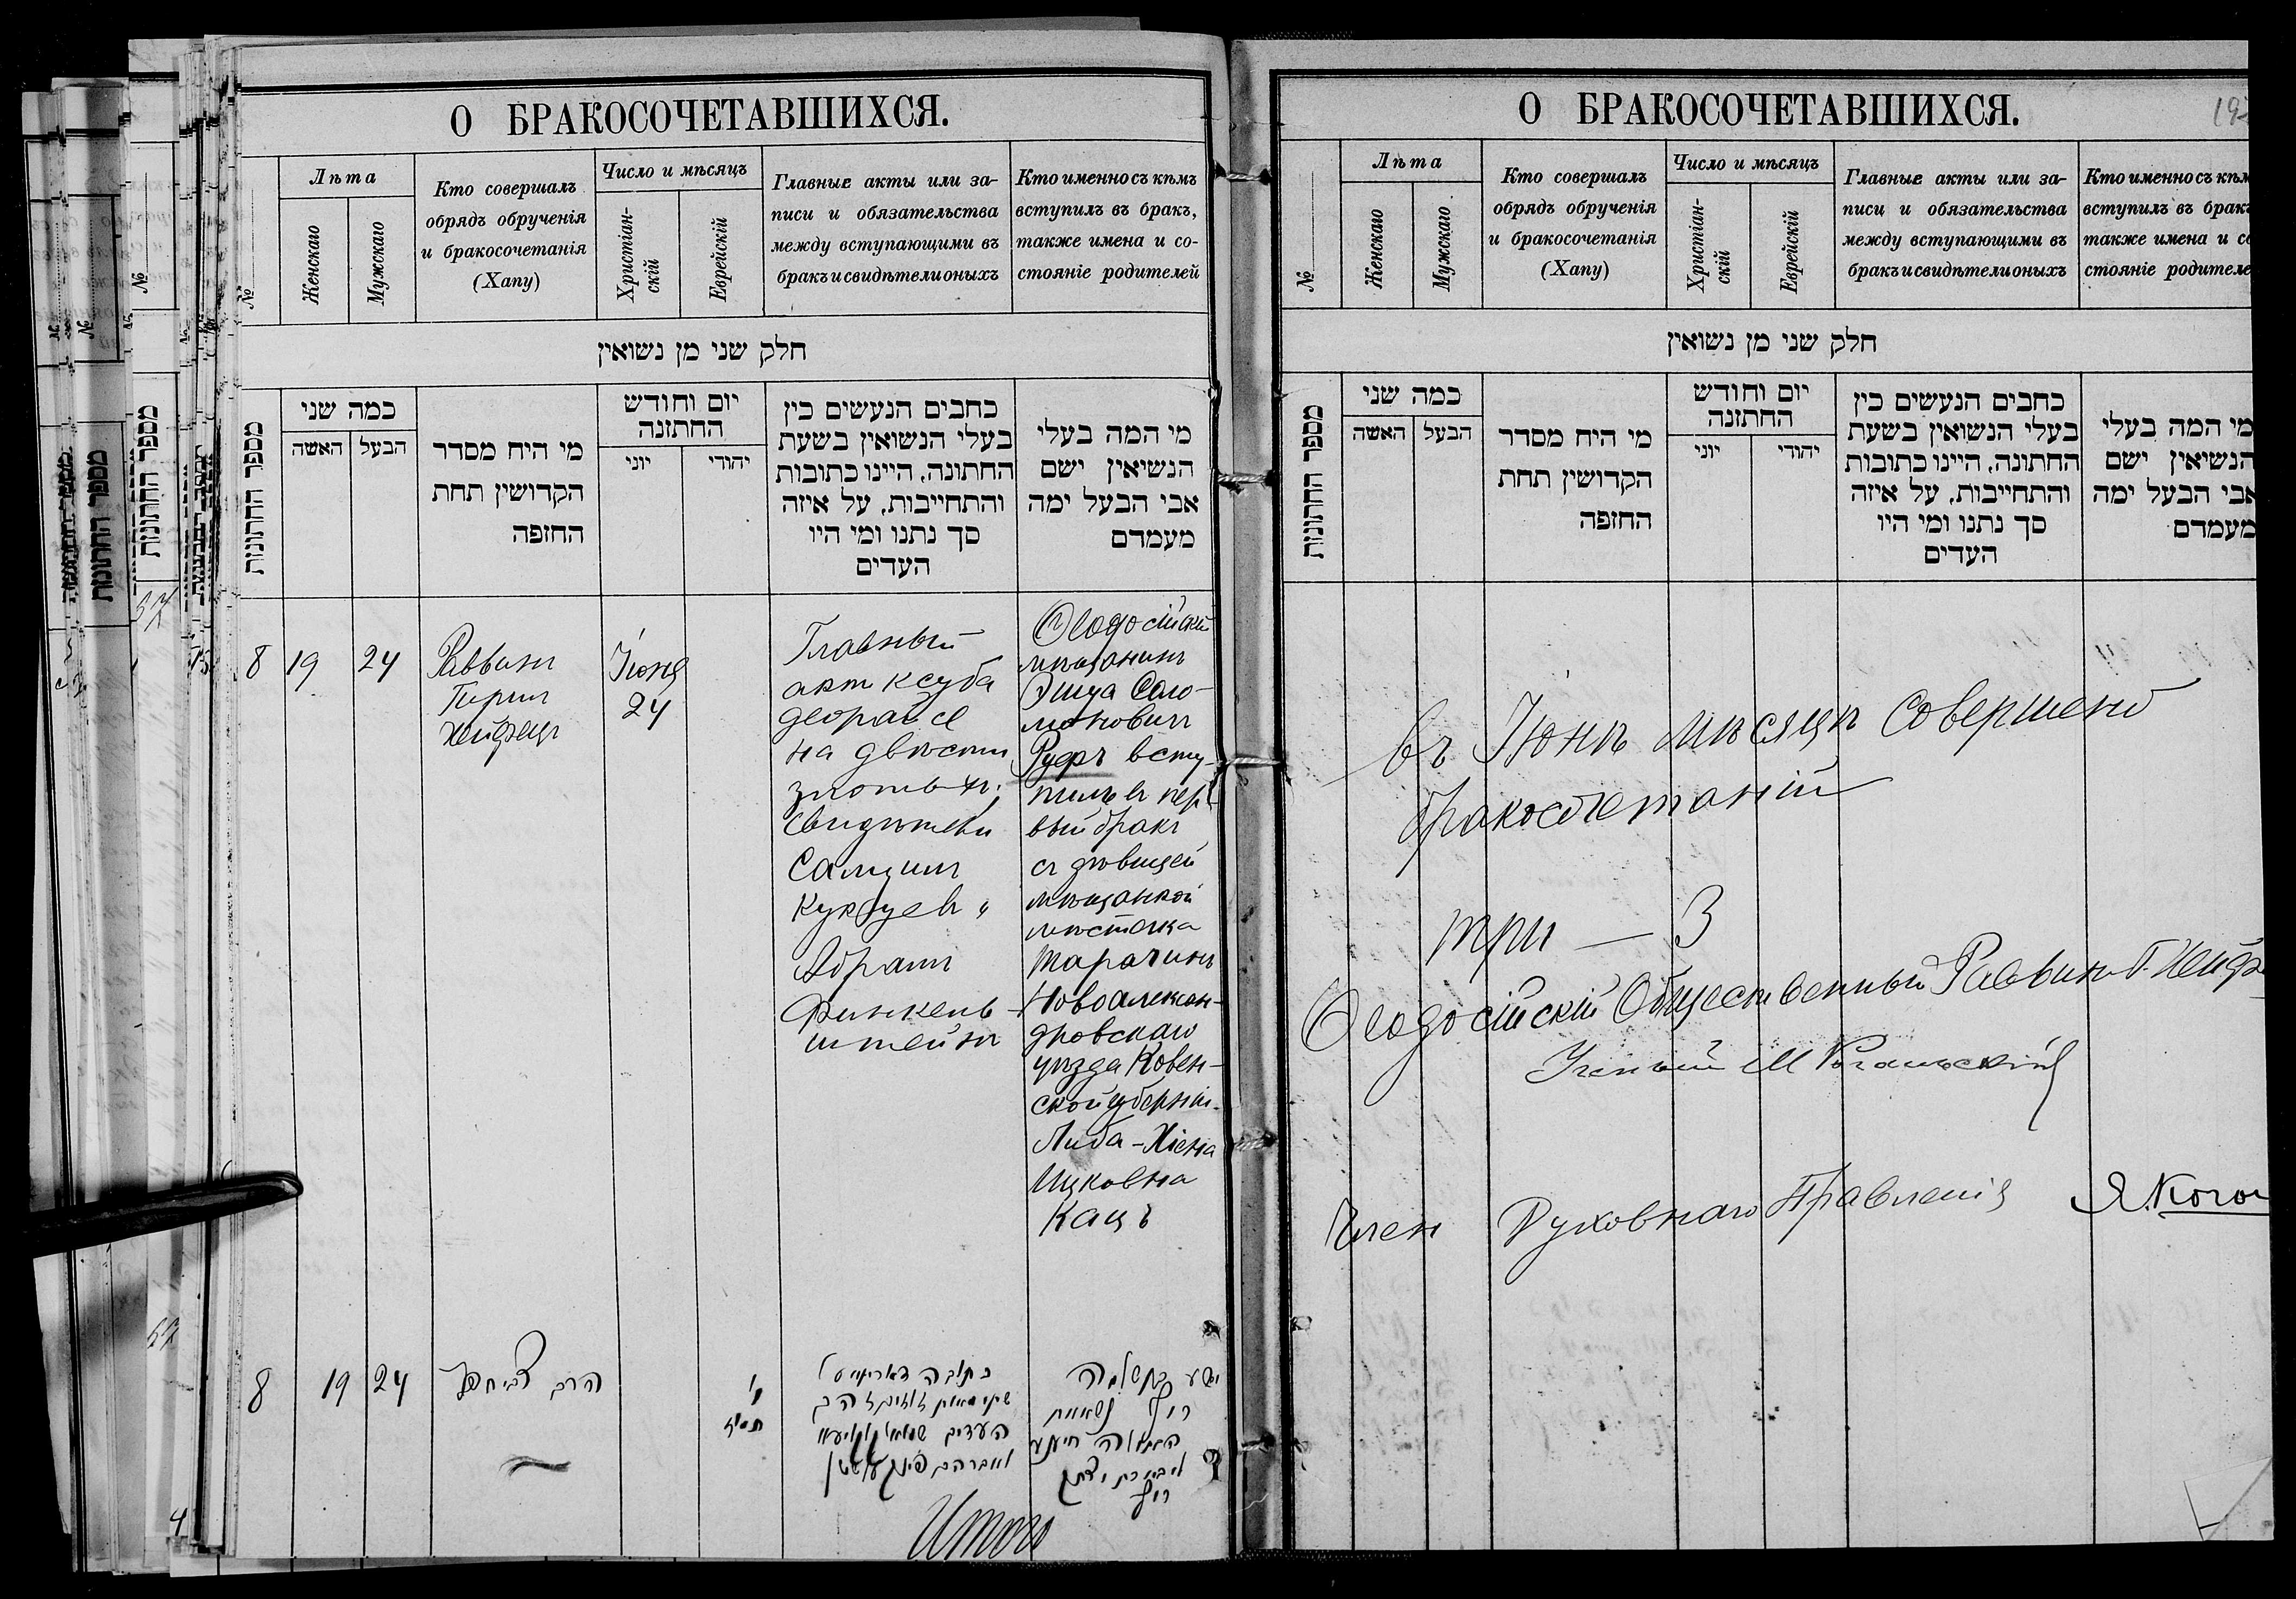 О БРАКОСОЧЕТАВШИХСЯ.
№
Лѣта
Женскаго
Мужскаго
Кто совершалъ
обрядъ обрученія
и бракосочетанія
(Хапу)
Число и мѣсяцъ
Христіан-
скій
Еврейскій
Главные акты или за-
писи и обязательства
между вступающими въ
бракъ и свидѣтели оныхъ
Кто именно съ кѣмъ
вступилъ въ бракъ,
также имена и со-
стояніе родителей
חלק שני מן נשואין
מספר החתונות
כמה שני
האשה
הבעל
מי היח מסדר
הקדושין תחת
החזפה
יום וחודש
החתזנה
יוני
יהודי
כחבים הנעשים כין
בעלי הנשואין בשעת
החתונה, היינו כתובות
והתחייבות, על איזה
סך נתנו ומי היו
העדים
מי המה בעלי
הנשיאין ישם
אבי הבעל ימה
מעמדם
8
19
24
Раввинъ
Гирш
Хейфецъ
Іюня
24
Главный
акт ксуба
деорайсе
на двѣсти
злотых;
Свидѣтели
Кукуев и
Абрам
Финкель-
штейнъ
Ѳеодосійскій
мѣщанинъ
Эшуа Соло-
моновичъ
Руфъ всту-
пилъ въ пер-
вый бракъ
съ дѣвицей
мѣщанкой
мѣстечка
Новоалексан-
дровскаго
уѣзда Ковен-
ской губерніи
Либа-Хіена
Ицковна
Кацъ
8
19
24
הרב
י'
תמוז
כתובה דאורייתא
העדים
ואברהם פינקעלשטיין
רוף
Итого
О БРАКОСОЧЕТАВШИХСЯ.
№
Лѣта
Женскаго
Мужскаго
Кто совершалъ
обрядъ обрученія
и бракосочетанія
(Хапу)
Число и мѣсяцъ
Христіан-
скій
Еврейскій
Главные акты или за-
писи и обязательства
между вступающими въ
бракъ и свидѣтели оныхъ
Кто именно съ кѣм
вступилъ въ брак
также имена и со
стояніе родителе
חלק שני מן נשואין
מספר החתונות
כמה שני
האשה
הבעל
מי היח מסדר
הקדושין תחת
החזפה
יום וחודש
החתזנה
יוני
יהודי
כחבים הנעשים כין
בעלי הנשואין בשעת
החתונה, היינו כתובות
והתחייבות, על איזה
סך נתנו ומי היו
העדים
מי המה בעלי
הנשיאין ישם
אבי הבעל ימה
מעמדם
въ Іюнѣ мѣсяцѣ совершено
бракосочетаній
три — 3
Ѳеодосійскій Общественный Раввинъ Г. Хейф
Ученый М
Член Духовнаго Правленія Я. Коган